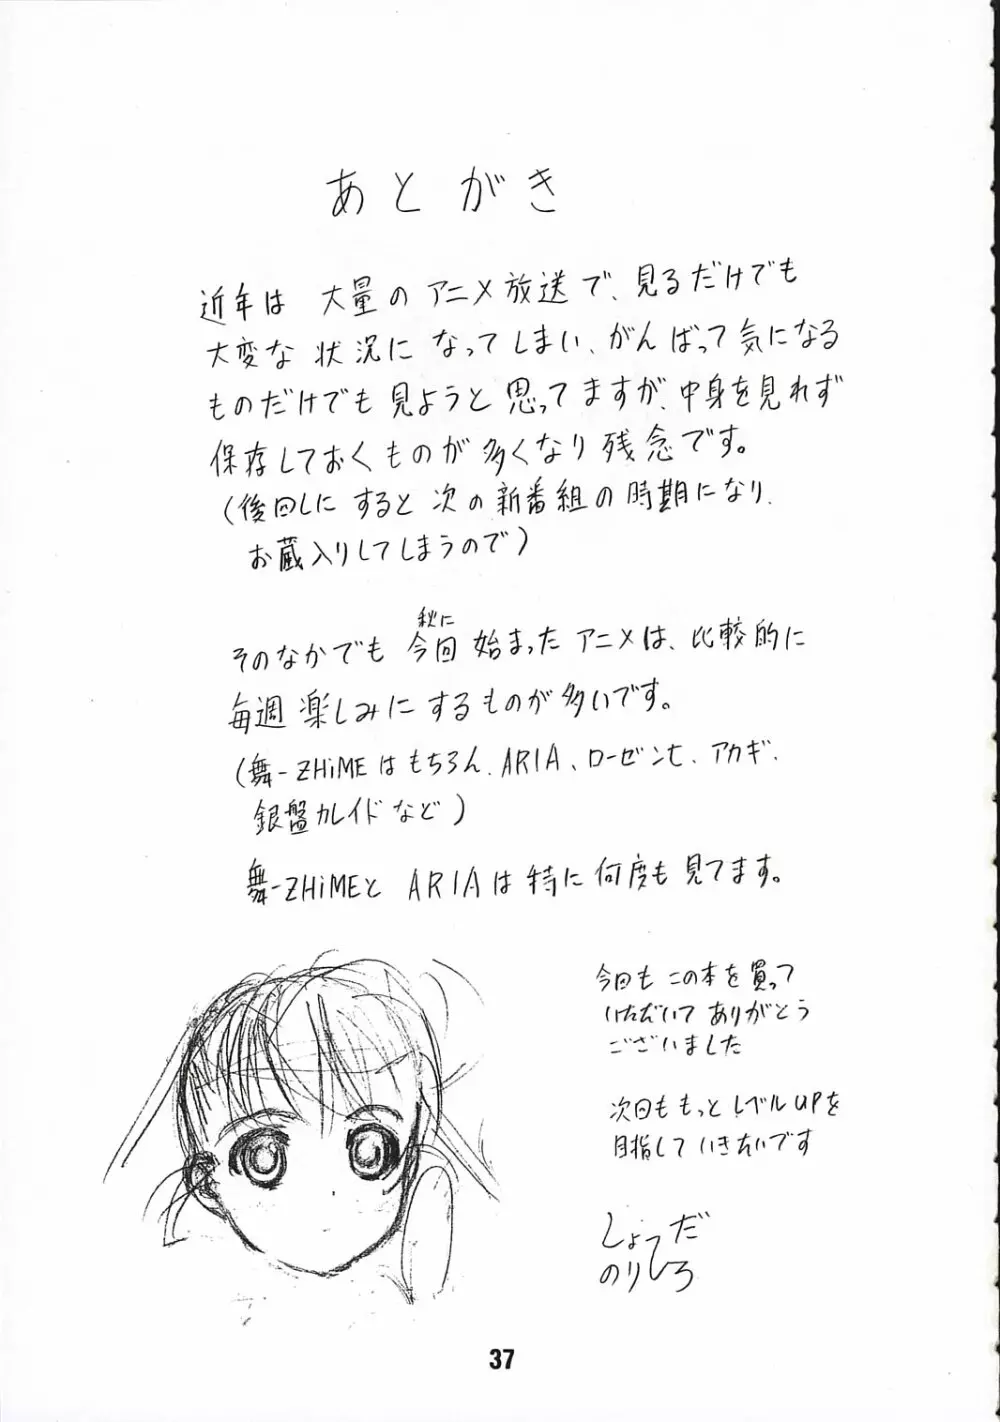 あとがき
近年は 大量のアニメ放送で、見るだけでも
大変な 状況に なってしまい、がんばって気になる
ものだけでも 見ようと 思ってますが、中身を見れず
保存しておくものが 多くなり 残念です。
(後回しに すると 次の新番組の時期になり、
お蔵入りしてしまうので)
秋に
そのなかでも 今回 始まった アニメは、比較的に
毎週 楽しみに するものが 多いです。
(舞-ZHiMEはもちろん、ARIA、ローゼンも、アカギ、
銀盤カレイド など)
舞-ZHiMEと ARIAは 特に 何度も 見てます。
今回も この本を 買って
いただいて ありがとう
ございました
次回も もっと レベルUPを
目指して いきたいです
しょうだ
のりひろ
37